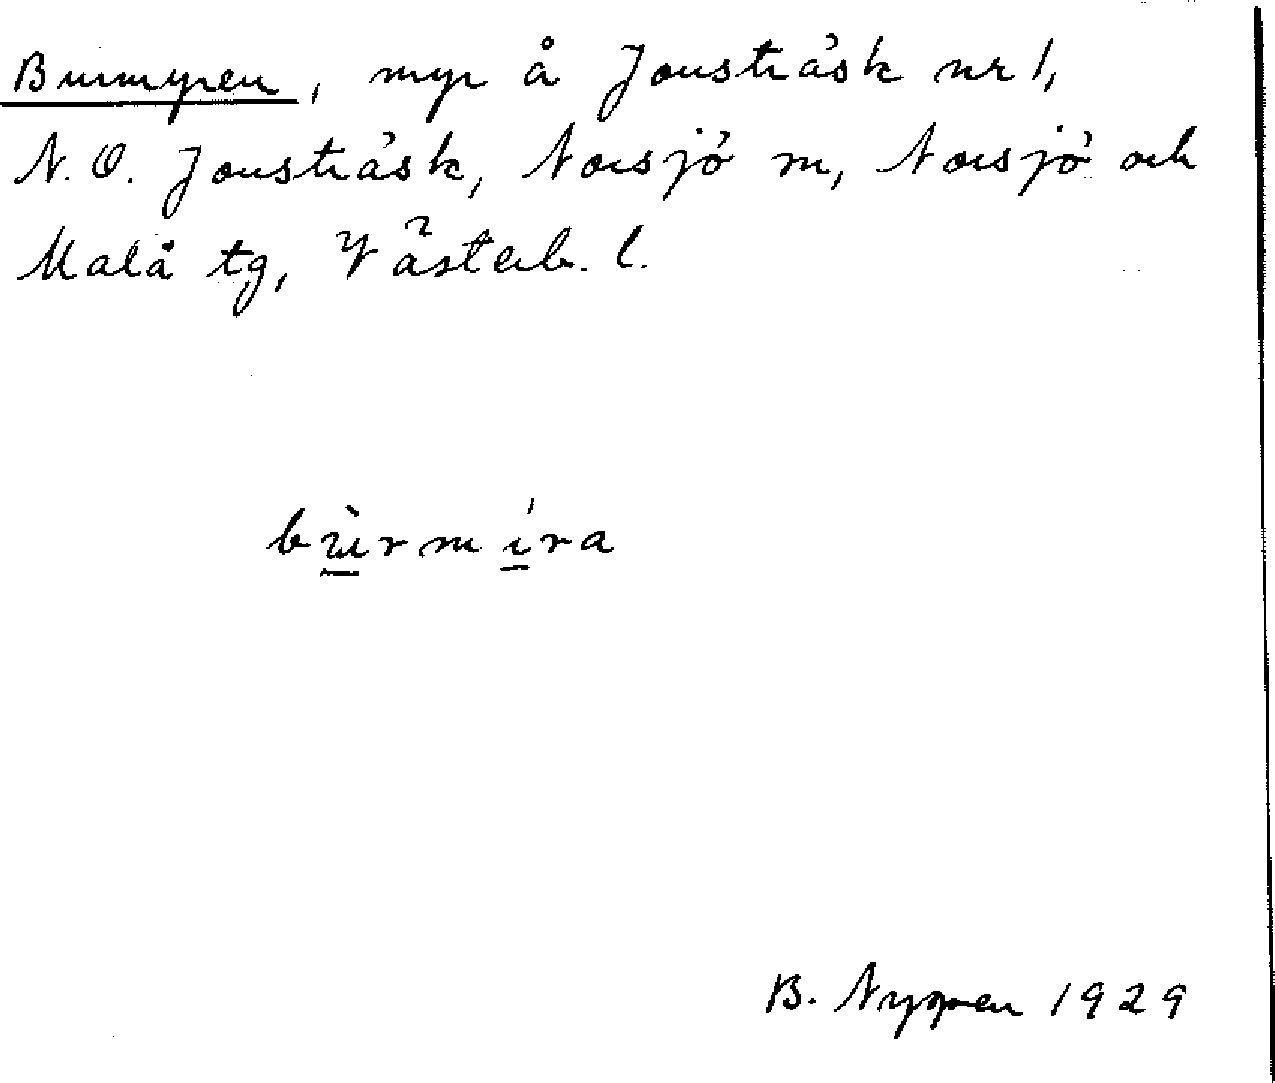 Burmyren, myr å Jonsträsk nr 1,
N.O. Jonsträsk, Norsjö m, Norsjö och
Malå tg, Västerb. l.
bù̲rmí̲ra
B. 1929